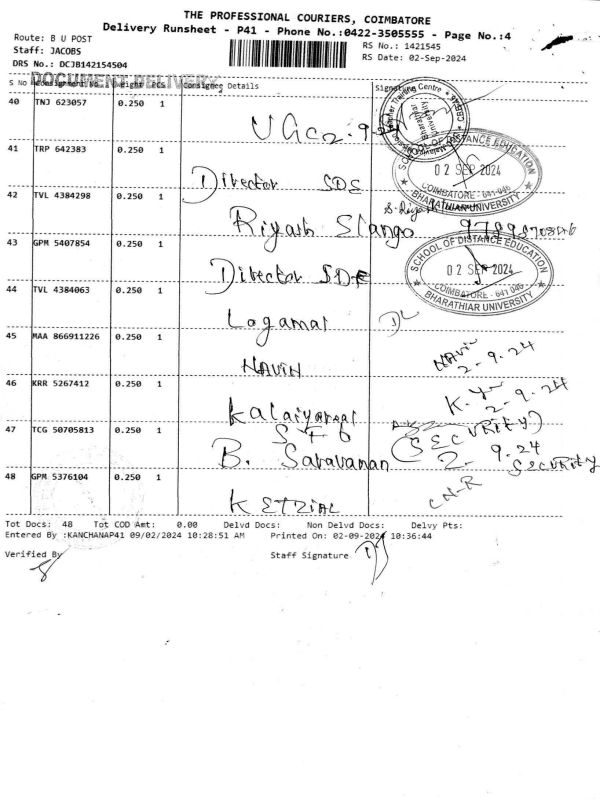 THE PROFESSIONAL COURIERS, COIMBATORE
Delivery Runsheet - P41 - Phone No.:0422-3505555 - Page No.:4
Route: B U POST
RS No.: 1421545
Staff: JACOBS
RS Date: 02-Sep-2024
DRS No.: DCJB142154504
DOCUMENT DELIVERY
S No Consignment No. Weight PCS Consignee Details Signature
40 TNJ 623057 0.250 1
UGC 2.9
41 TRP 642383 0.250 1
Director SDE
SCHOOL OF DISTANCE EDUCATION
02 SEP 2024
COIMBATORE - 641 046
BHARATHIAR UNIVERSITY
42 TVL 4384298 0.250 1
Riyash Slango
43 GPM 5407854 0.250 1
Director SDE
SCHOOL OF DISTANCE EDUCATION
02 SEP 2024
COIMBATORE - 641 046
BHARATHIAR UNIVERSITY
44 TVL 4384063 0.250 1
Logamal DL
45 MAA 866911226 0.250 1
NAVIN Navin 2-9-24
46 KRR 5267412 0.250 1
Kalaiyarsal K.Y 2-9.24
47 TCG 50705813 0.250 1
(SECURITY)
B. Saravanan 2. 9.24
SECURITY
48 GPM 5376104 0.250 1
KETZIAL CN-R
Tot Docs: 48 Tot COD Amt: 0.00 Delvd Docs: Non Delvd Docs: Delvy Pts:
Entered By :KANCHANAP41 09/02/2024 10:28:51 AM Printed On: 02-09-2024 10:36:44
Verified By Staff Signature